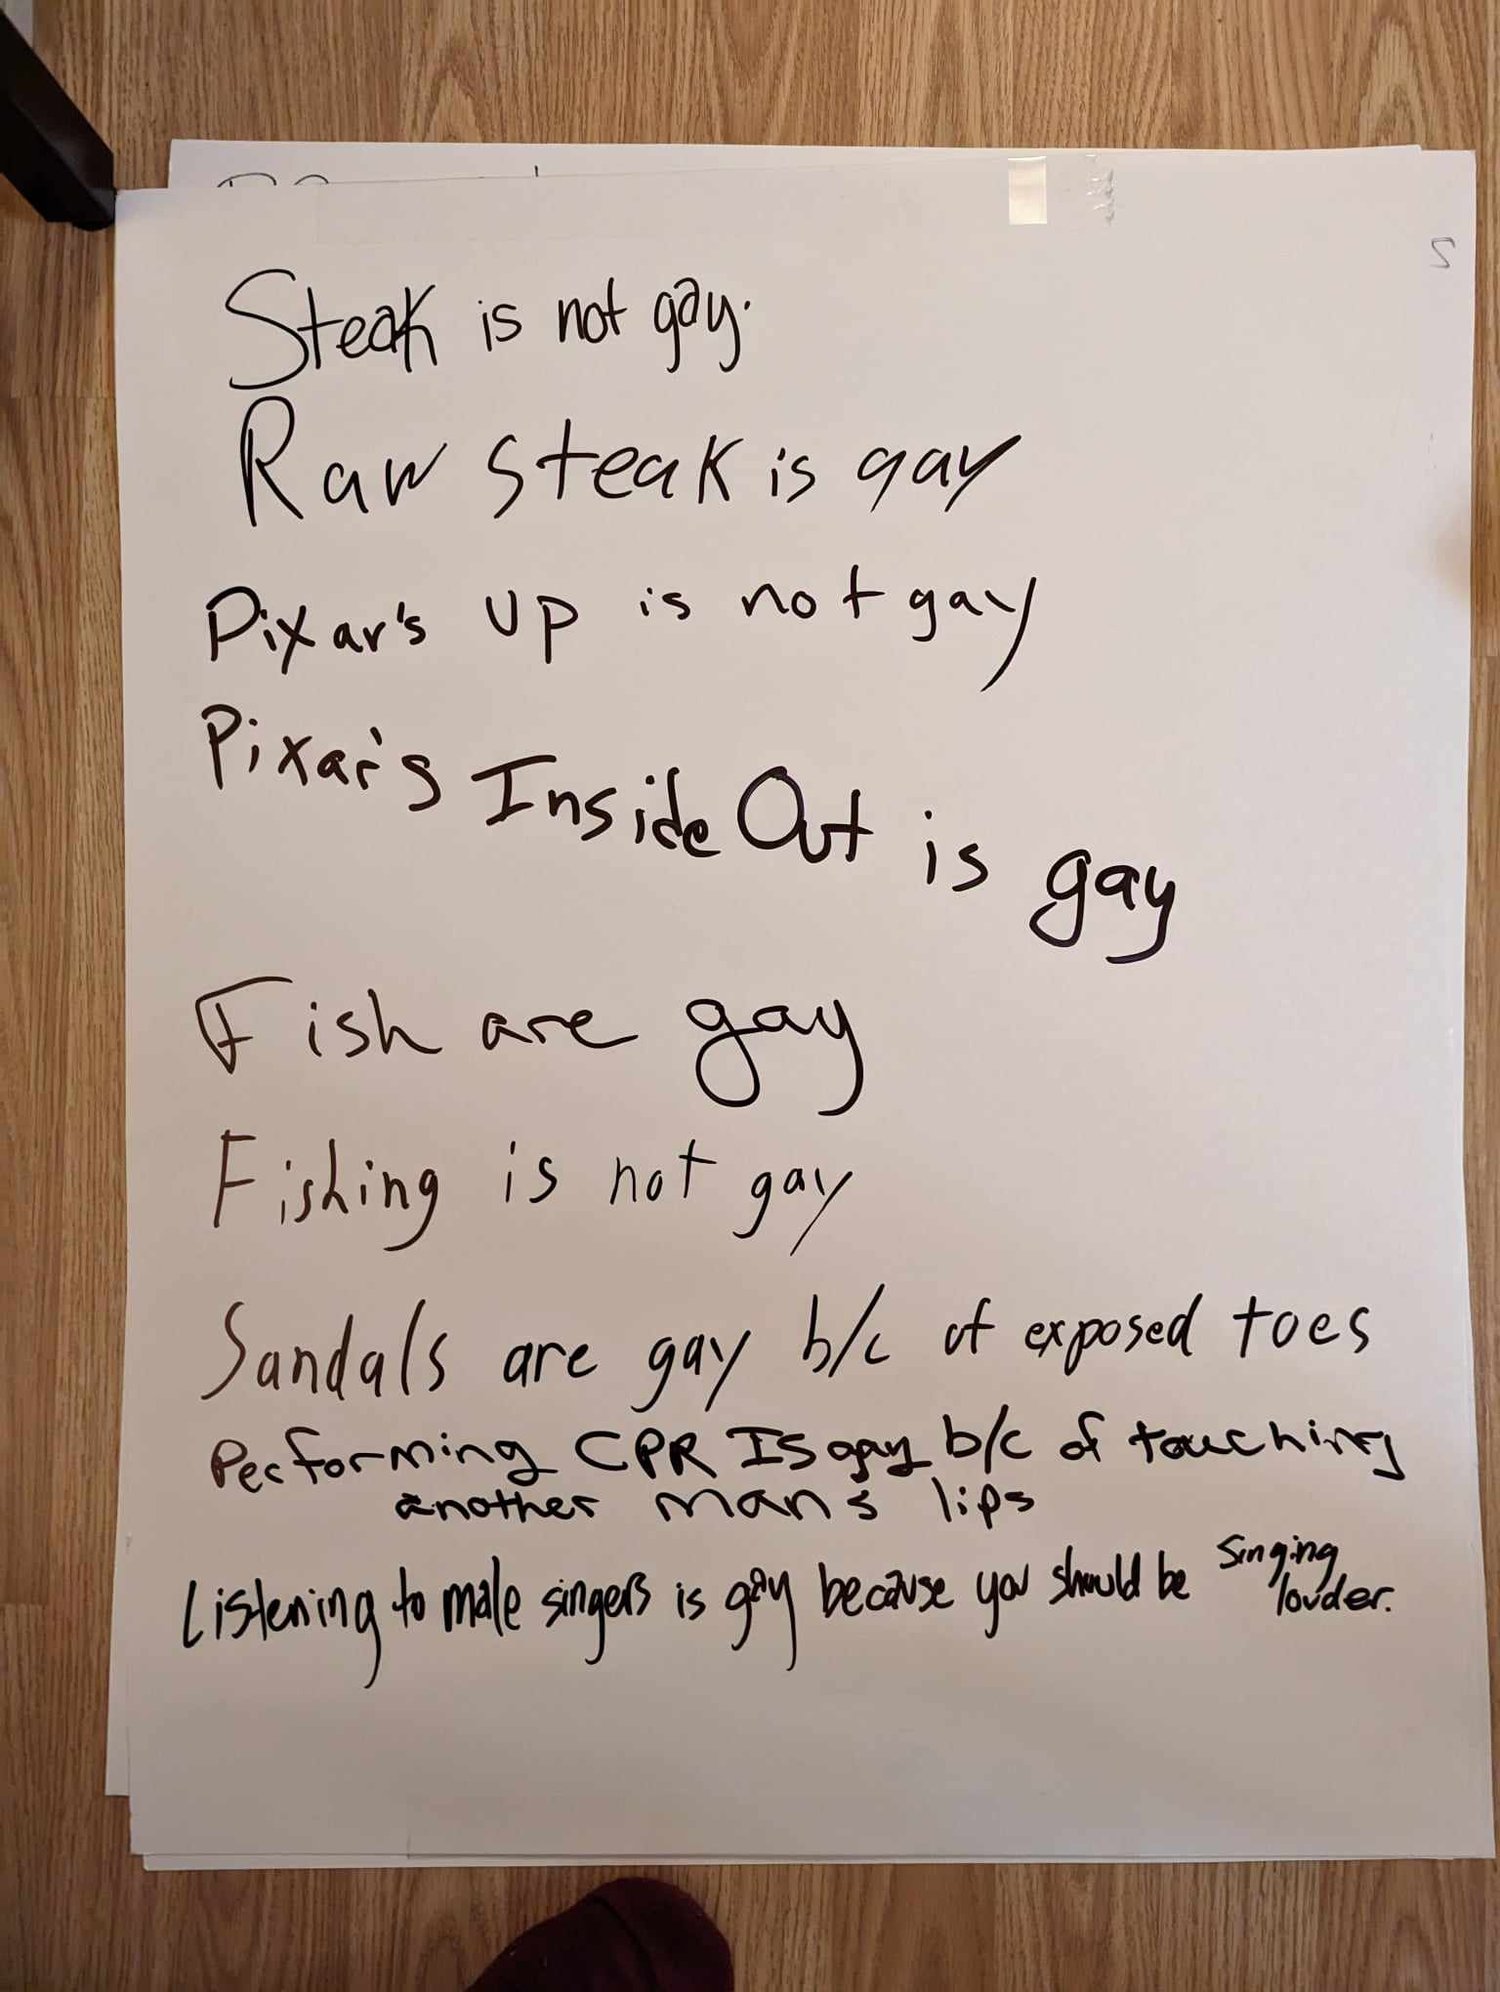 S
Steak is not gay.
Raw steak is gay
Pixar's Up is not gay
Pixar's Inside Out is gay
Fish are gay
Fishing is not gay
Sandals are gay b/c of exposed toes
Performing CPR Is gay b/c of touching
another man's lips
Listening to male singers is gay because you should be singing
louder.